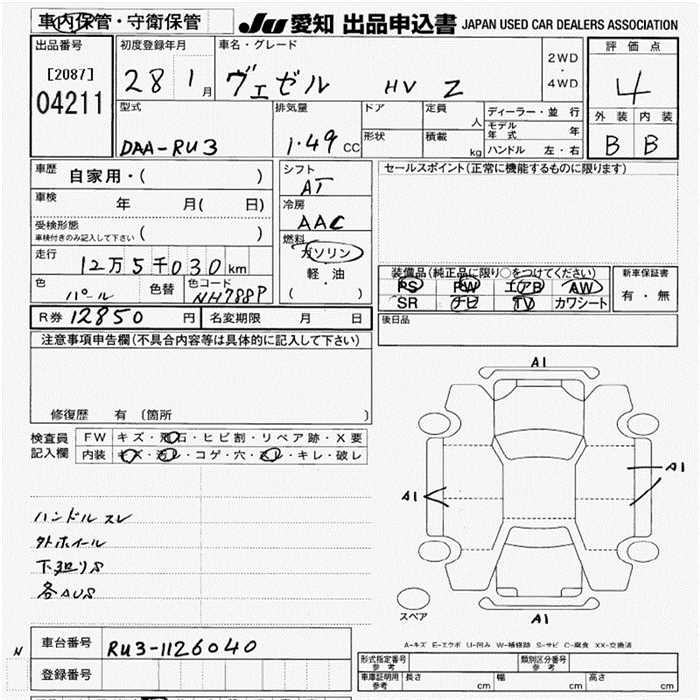 車内保管・守衛保管
JU 愛知 出品申込書 JAPAN USED CAR DEALERS ASSOCIATION
出品番号 初度登録年月 車名・グレード 評価点
[2087] 04211 28 1月 ヴェゼル HV Z 2WD・4WD 4
型式 排気量 ドア 定員 人 ディーラー・並行 外装 内装
DAA-RU3 1.49 CC 形状 積載 kg モデル年式 年 B B
ハンドル 左・右
車歴 自家用・( ) シフト AT セールスポイント(正常に機能するものに限ります)
車検 年 月( 日) 冷房 AAC
受検形態 車検付きのみ記入して下さい ( ) 燃料 ガソリン
走行 12万5千030km 軽・油 ( )
装備品(純正品に限り○をつけてください) 新車保証書
色 パール 色替 色コード NH788P PS PW エアB AW 有・無
SR ナビ TV カワシート
R券 12850円 名変期限 月 日 後日品
注意事項申告欄(不具合内容等は具体的に記入して下さい)
修復歴 有 (箇所 )
検査員記入欄 FW キズ・飛石・ヒビ割・リペア跡・X要
内装 キズ・汚レ・コゲ・穴・スレ・キレ・破レ
A1
A1
A1
ハンドル スレ
外ホイール
下廻りS
各AUS
スペア
A1
A-キズ E-エクボ U-凹み W-補修跡 S-サビ C-腐食 XX-交換済
N 車台番号 RU3-1126040
登録番号
形式指定番号 参考 類別区分番号 参考
車庫証明用 参考 長さ cm 幅 cm 高さ cm